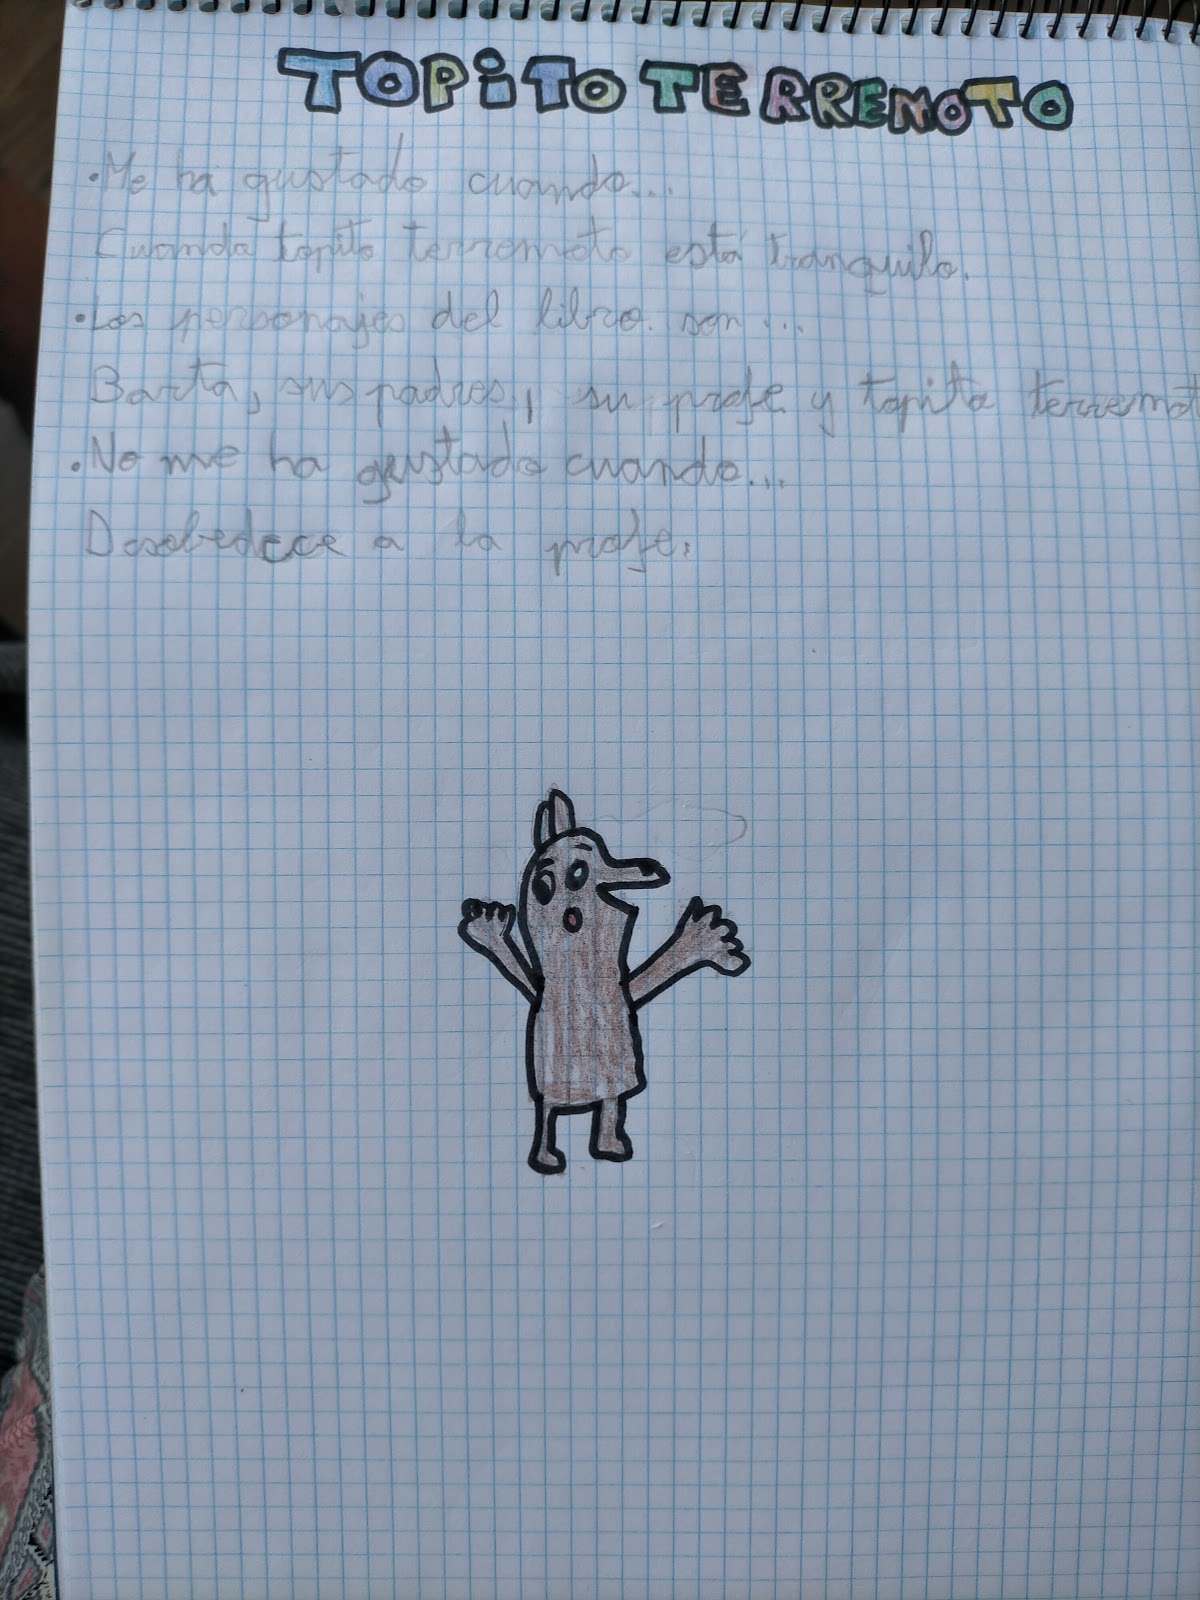 TOPiTO TERREMOTO
.Me ha gustado cuando...
Cuando topito terremoto está tranquilo.
.Los personajes del libro. son...
Barta, sus padres, su profe y topito terremot
.No me ha gustado cuando...
Desobedece a la profe.